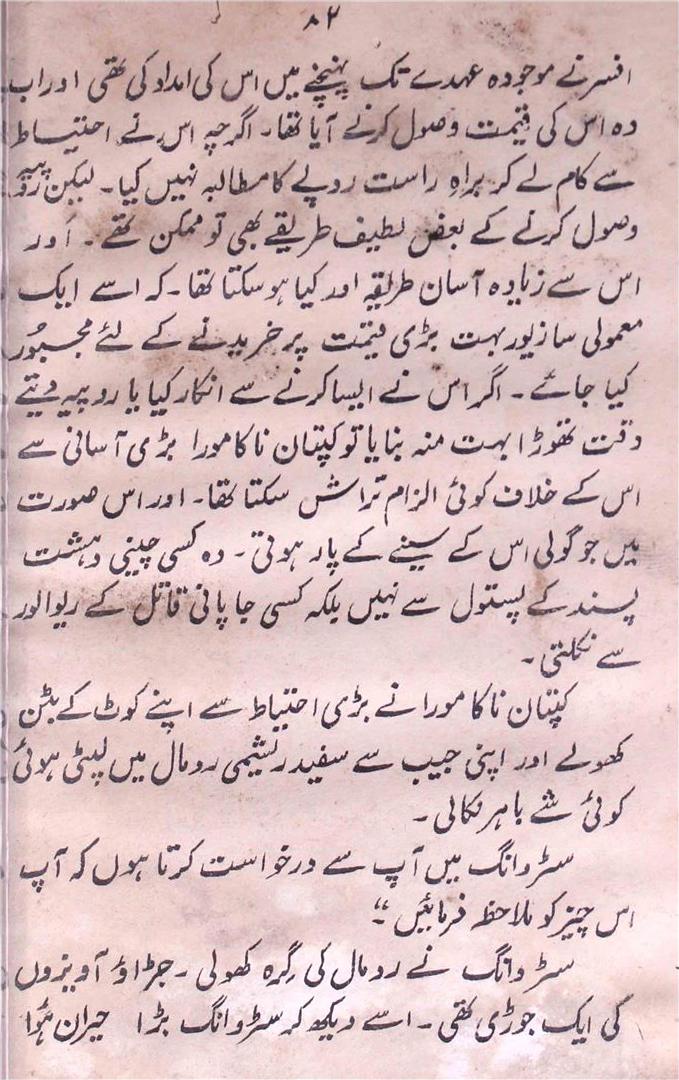 ۸۲
افسر نے موجودہ عہدے تک پہنچنے میں اس کی امداد کی تھی اور اب
وہ اس کی قیمت وصول کرنے آیا تھا۔ اگرچہ اس نے احتیاط
سے کام لے کر براہِ راست روپے کا مطالبہ نہیں کیا۔ لیکن روپیہ
وصول کرنے کے بعض لطیف طریقے بھی تو ممکن تھے۔ اَور
اس سے زیادہ آسان طریقہ اور کیا ہو سکتا تھا۔ کہ اسے ایک
معمولی سا زیور بہت بڑی قیمت پر خریدنے کے لئے مجبُور
کیا جائے۔ اگر اس نے ایسا کرنے سے انکار کیا یا روپیہ دیتے
وقت تھوڑا بہت منہ بنایا تو کپتان ناکامورا بڑی آسانی سے
اس کے خلاف کوئی الزام تراش سکتا تھا۔ اور اس صورت
میں جو گولی اس کے سینے کے پار ہوتی۔ وہ کسی چینی دہشت
پسند کے پستول سے نہیں بلکہ کسی جاپانی قاتل کے ریوالور
سے نکلتی۔
کپتان ناکامورا نے بڑی احتیاط سے اپنے کوٹ کے بٹن
کھولے اور اپنی جیب سے سفید ریشمی رومال میں لپٹی ہوئی
کوئی شے باہر نکالی۔
مسٹر وانگ میں آپ سے درخواست کرتا ہوں کہ آپ
اس چیز کو ملاحظہ فرمائیں“۔
مسٹر وانگ نے رومال کی گِرہ کھولی۔ جڑاؤ آویزوں
کی ایک جوڑی تھی۔ اسے دیکھ کر مسٹر وانگ بڑا حیران ہُوا